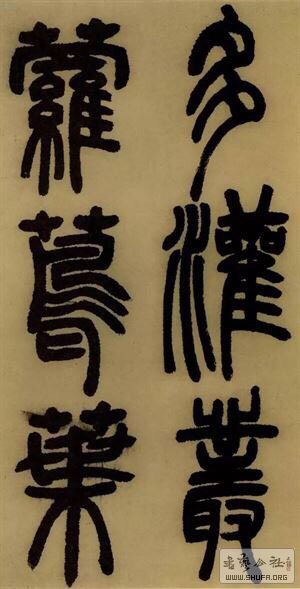 多灌叢
蘿蔦葉
書藝公社
WWW.SHUFA.ORG